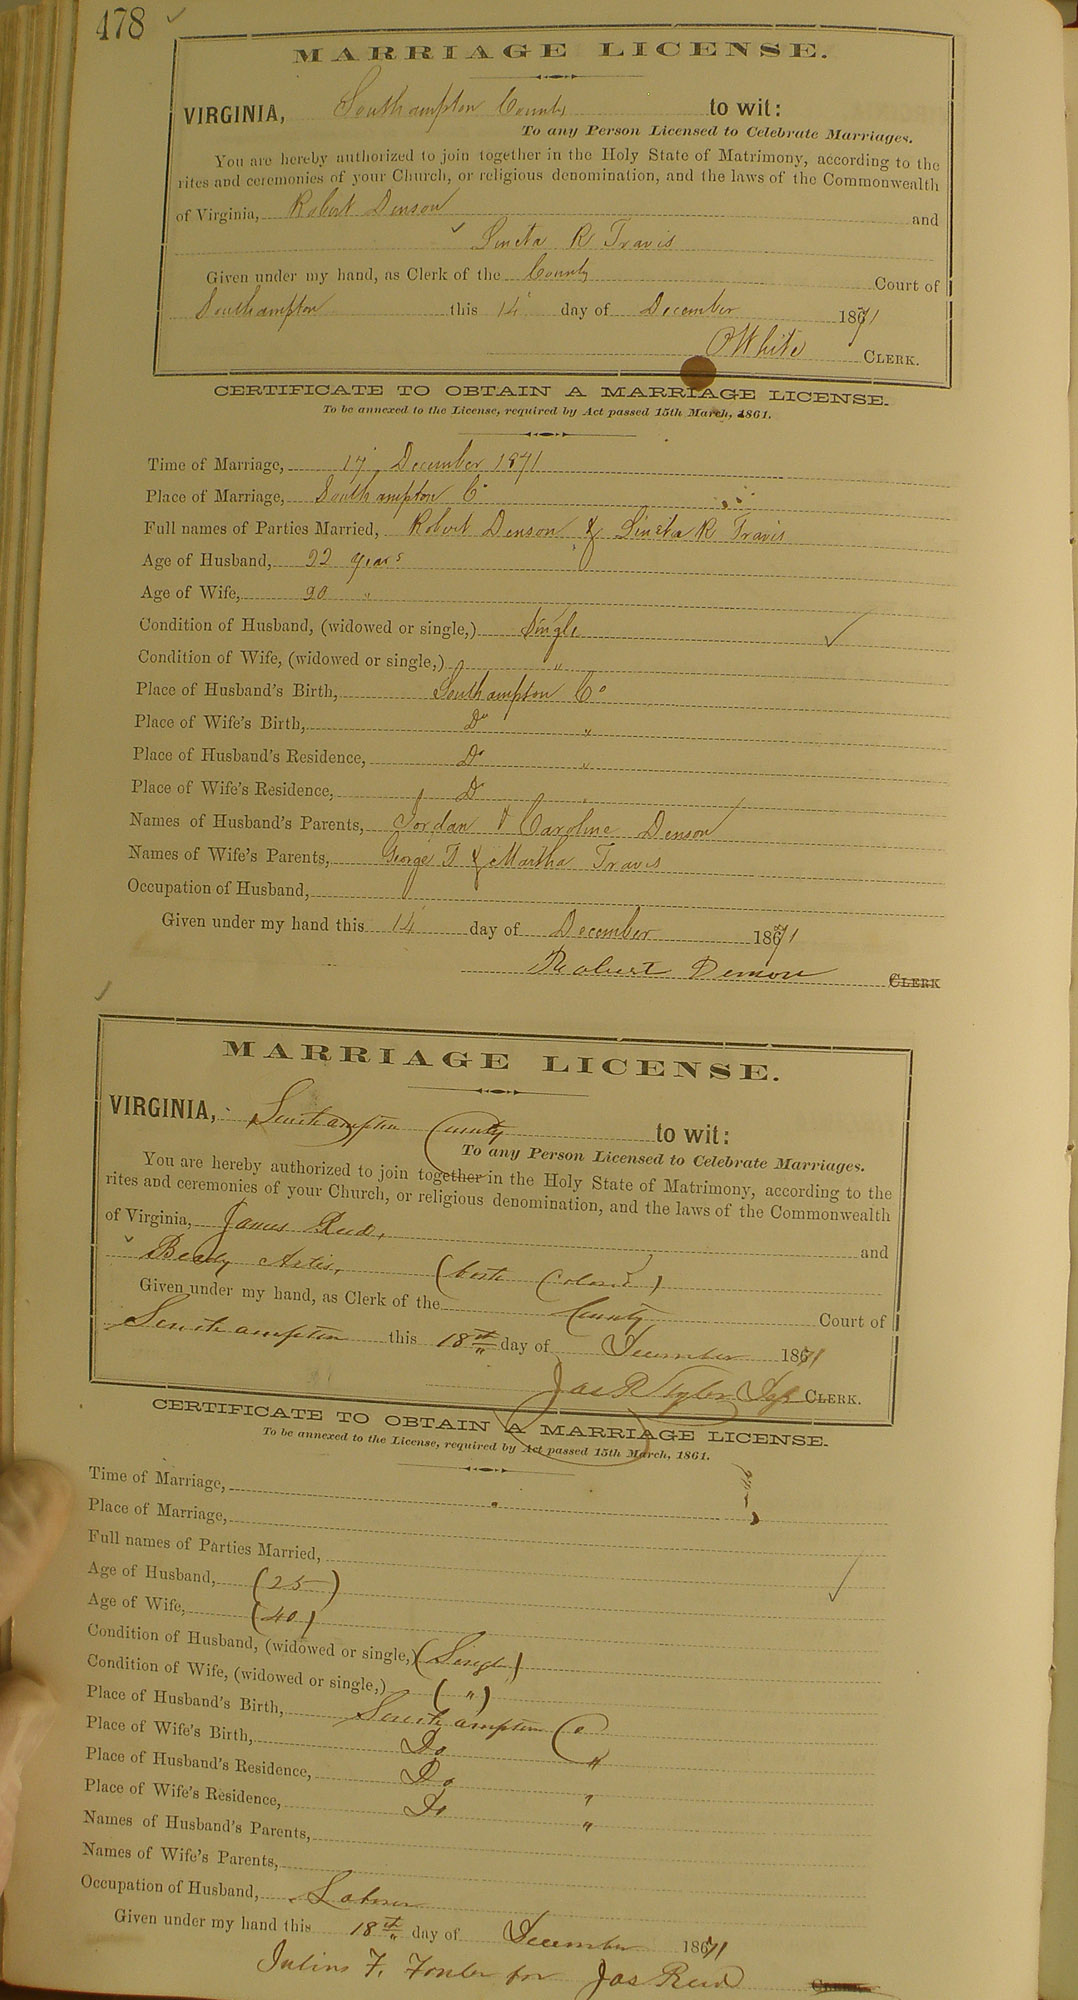 478
MARRIAGE LICENSE.
VIRGINIA, Southampton County to wit:
To any Person Licensed to Celebrate Marriages.
You are hereby authorized to join together in the Holy State of Matrimony, according to the
rites and ceremonies of your Church, or religious denomination, and the laws of the Commonwealth
of Virginia, Robert Denson and
R Travis
Given under my hand, as Clerk of the County Court of
Southampton this 14 day of December 1871
White CLERK.
CERTIFICATE TO OBTAIN A MARRIAGE LICENSE.
To be annexed to the License, required by Act passed 15th March, 1861.
Time of Marriage, 17 December 1871
Place of Marriage, Southampton Co
Full names of Parties Married, Robert Denson & R Travis
Age of Husband, 22 years
Age of Wife, 20 "
Condition of Husband, (widowed or single,) Single
Condition of Wife, (widowed or single,) "
Place of Husband's Birth, Southampton Co
Place of Wife's Birth, Do "
Place of Husband's Residence, Do "
Place of Wife's Residence, Do "
Names of Husband's Parents, Jordan & Caroline Denson
Names of Wife's Parents, George T & Martha Travis
Occupation of Husband,
Given under my hand this 14 day of December 1871
Robert Denson CLERK
MARRIAGE LICENSE.
VIRGINIA, Southampton County to wit:
To any Person Licensed to Celebrate Marriages.
You are hereby authorized to join together in the Holy State of Matrimony, according to the
rites and ceremonies of your Church, or religious denomination, and the laws of the Commonwealth
of Virginia, James Reid, and
Artis, (both Colored)
Given under my hand, as Clerk of the County Court of
Southampton this 18th day of December 1871
Jas R CLERK.
CERTIFICATE TO OBTAIN A MARRIAGE LICENSE.
To be annexed to the License, required by Act passed 15th March, 1861.
Time of Marriage,
Place of Marriage,
Full names of Parties Married,
Age of Husband, (25)
Age of Wife, (40)
Condition of Husband, (widowed or single,) (Single)
Condition of Wife, (widowed or single,) (")
Place of Husband's Birth, Southampton Co
Place of Wife's Birth, Do "
Place of Husband's Residence, Do "
Place of Wife's Residence, Do "
Names of Husband's Parents,
Names of Wife's Parents,
Occupation of Husband, Laborer
Given under my hand this 18th day of December 1871
Julius F. for Jas Reid